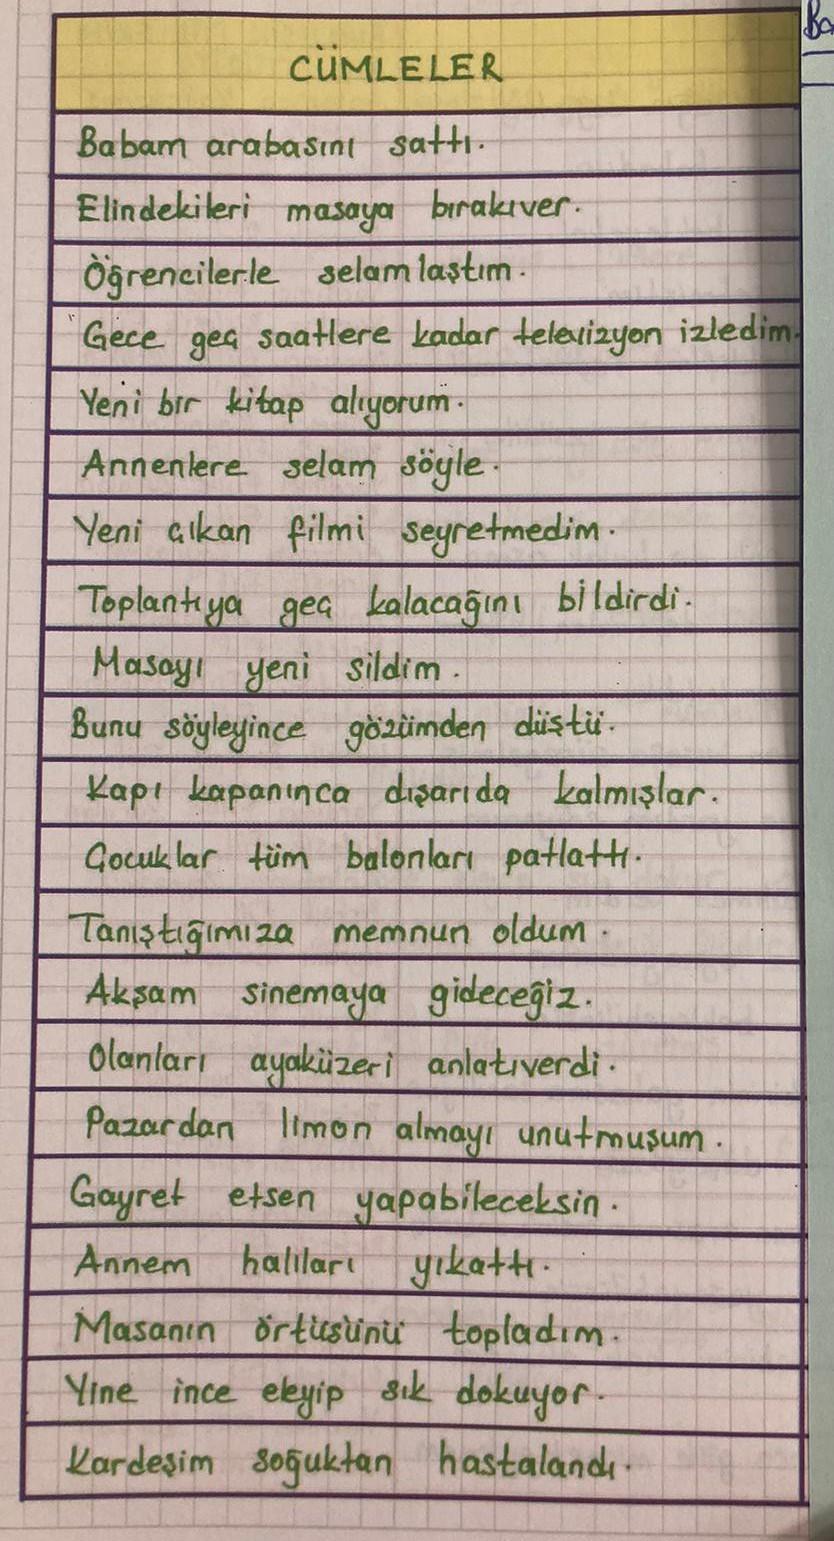 CÜMLELER
Ba
Babam arabasını sattı.
Elindekileri masaya bırakıver.
Öğrencilerle selamlaştım.
Gece geç saatlere kadar televizyon izledim.
Yeni bir kitap alıyorum.
Annenlere selam söyle.
Yeni çıkan filmi seyretmedim.
Toplantıya geç kalacağını bildirdi.
Masayı yeni sildim.
Bunu söyleyince gözümden düştü.
Kapı kapanınca dışarıda kalmışlar.
Çocuklar tüm balonları patlattı.
Tanıştığımıza memnun oldum.
Akşam sinemaya gideceğiz.
Olanları ayaküzeri anlatıverdi.
Pazardan limon almayı unutmuşum.
Gayret etsen yapabileceksin.
Annem halıları yıkattı.
Masanın örtüsünü topladım.
Yine ince eleyip sık dokuyor.
Kardeşim soğuktan hastalandı.